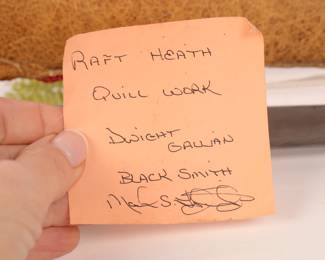 RAFT HEATH
QUILL WORK
DWIGHT
GALLIAN
BLACK SMITH
Mark S.